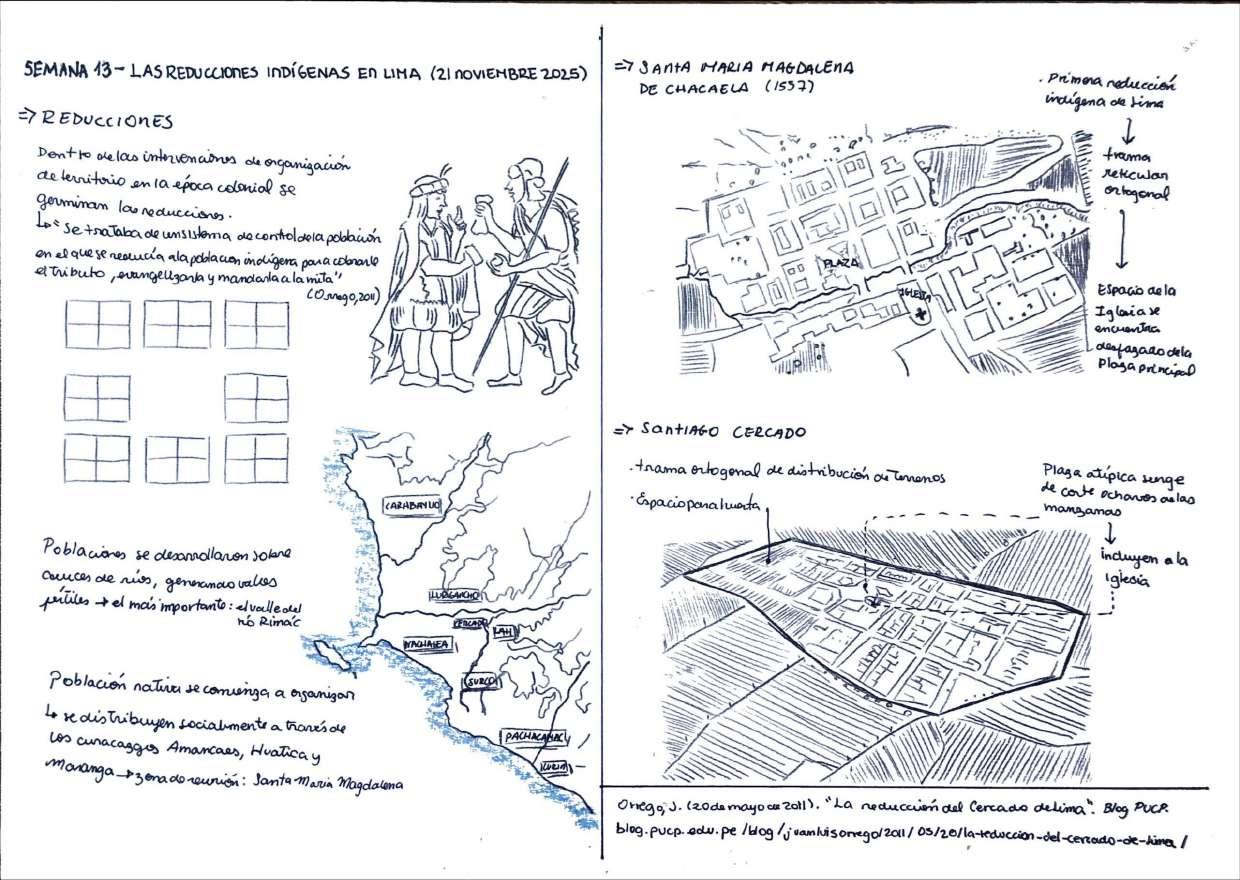 SEMANA 13 - LAS REDUCCIONES INDÍGENAS EN LIMA (21 NOVIEMBRE 2025)
=> REDUCCIONES
Dentro de las intervenciones de organización
de territorio en la época colonial se
germinan las reducciones.
↳ "Se trataba de un sistema de control de la población
en el que se reducía a la población indígena para cobrarle
el tributo, evangelizarla y mandarla a la mita"
(Orrego, 2011)
Poblaciones se desarrollaron sobre
cauces de ríos, generando valles
fértiles → el más importante: el valle del
río Rímac
Población nativa se comienza a organizar
↳ se distribuyen socialmente a través de
los curacazgos Amancaes, Huatica y
Maranga → zona de reunión: Santa María Magdalena
CARABAYLLO
LURIGANCHO
CERCADO
LATI
MAGDALENA
SURCO
PACHACAMAC
LURIN
=> SANTA MARIA MAGDALENA
DE CHACAELA (1557)
. Primera reducción
indígena de Lima
trama
reticular
ortogonal
Espacio de la
Iglesia se
encuentra
desfazado de la
Plaza principal
PLAZA
IGLESIA
=> SANTIAGO CERCADO
. trama ortogonal de distribución de terrenos
. Espacio para huerta
Plaza atípica surge
de corte ochavos de las
manzanas
incluyen a la
Iglesia
Orrego, J. (20 de mayo de 2011). "La reducción del Cercado de Lima". Blog PUCP.
blog.pucp.edu.pe/blog/juanluisorrego/2011/05/20/la-reduccion-del-cercado-de-lima/